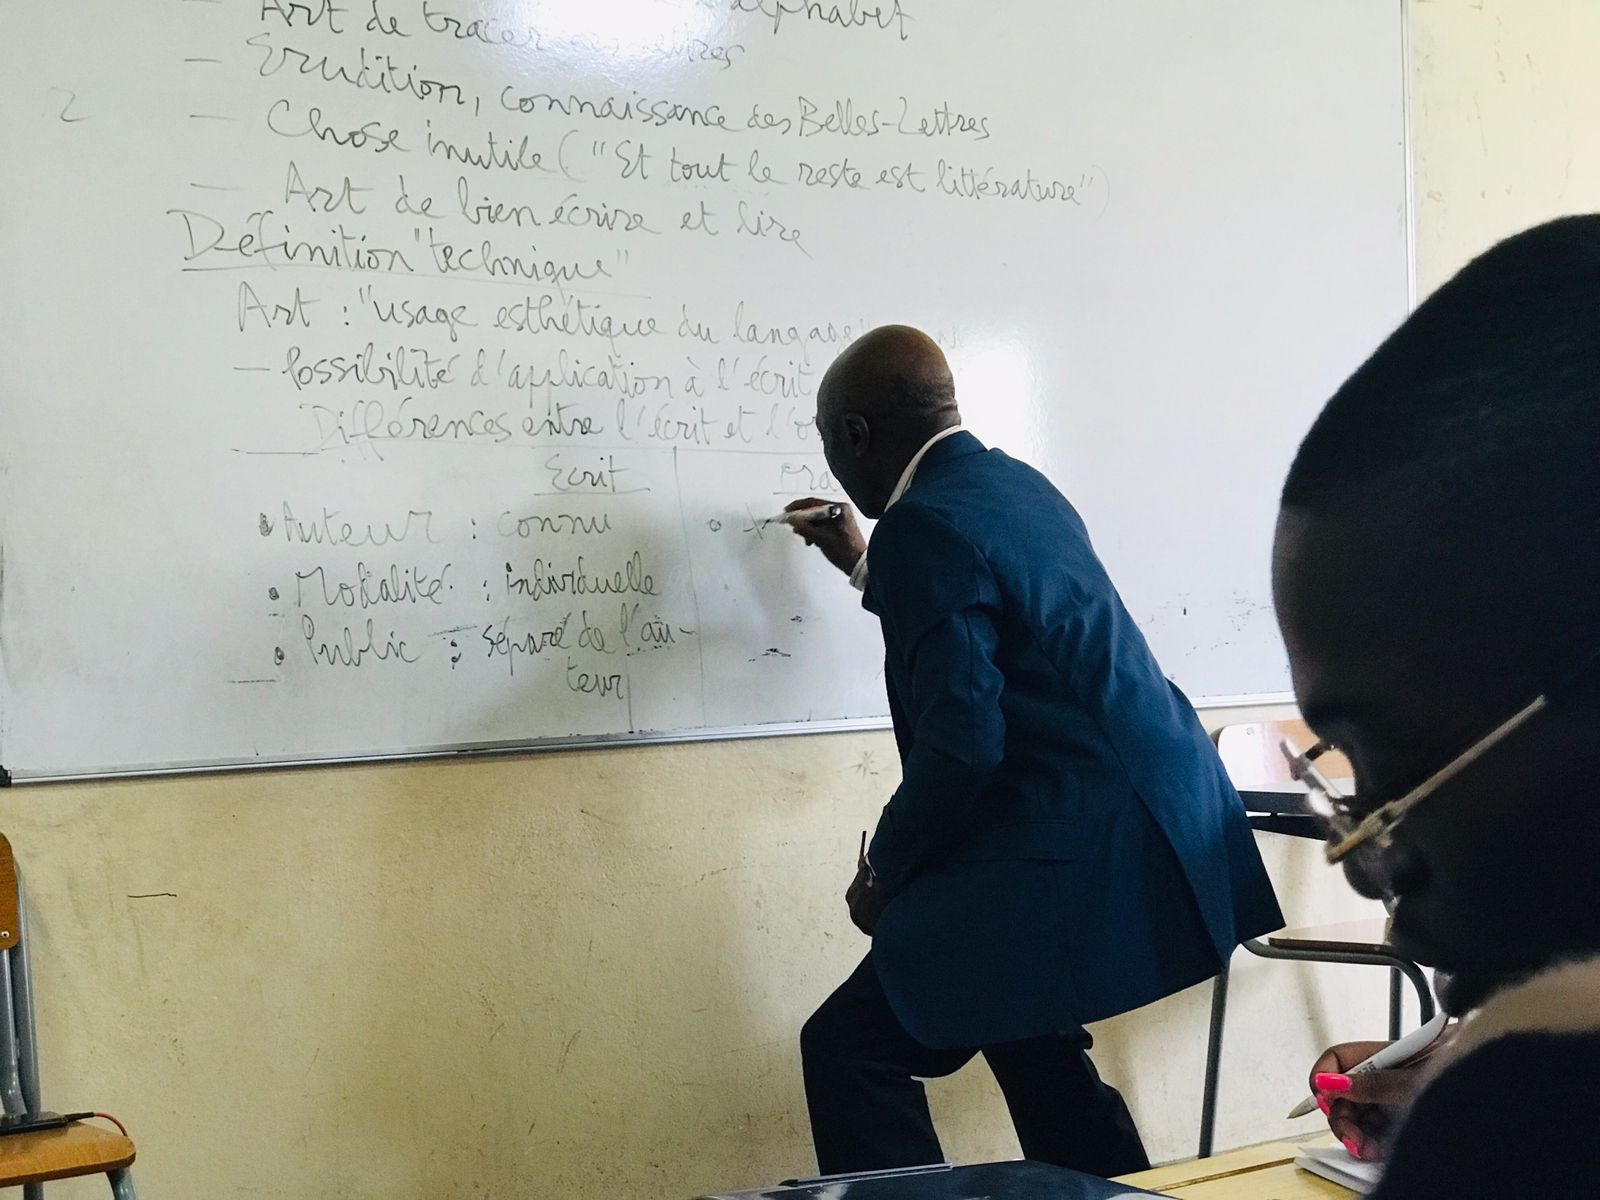 — Art de tracer les lettres alphabet
— Erudition, connaissance des Belles-Lettres
— Chose inutile ("Et tout le reste est littérature")
— Art de bien écrire et lire
Définition "technique"
Art : "usage esthétique du langage"
— Possibilité d'application à l'écrit
Différences entre l'écrit et l'o
Ecrit Ora
• Auteur : connu
• Modalité : individuelle
• Public : séparé de l'au-
teur
2